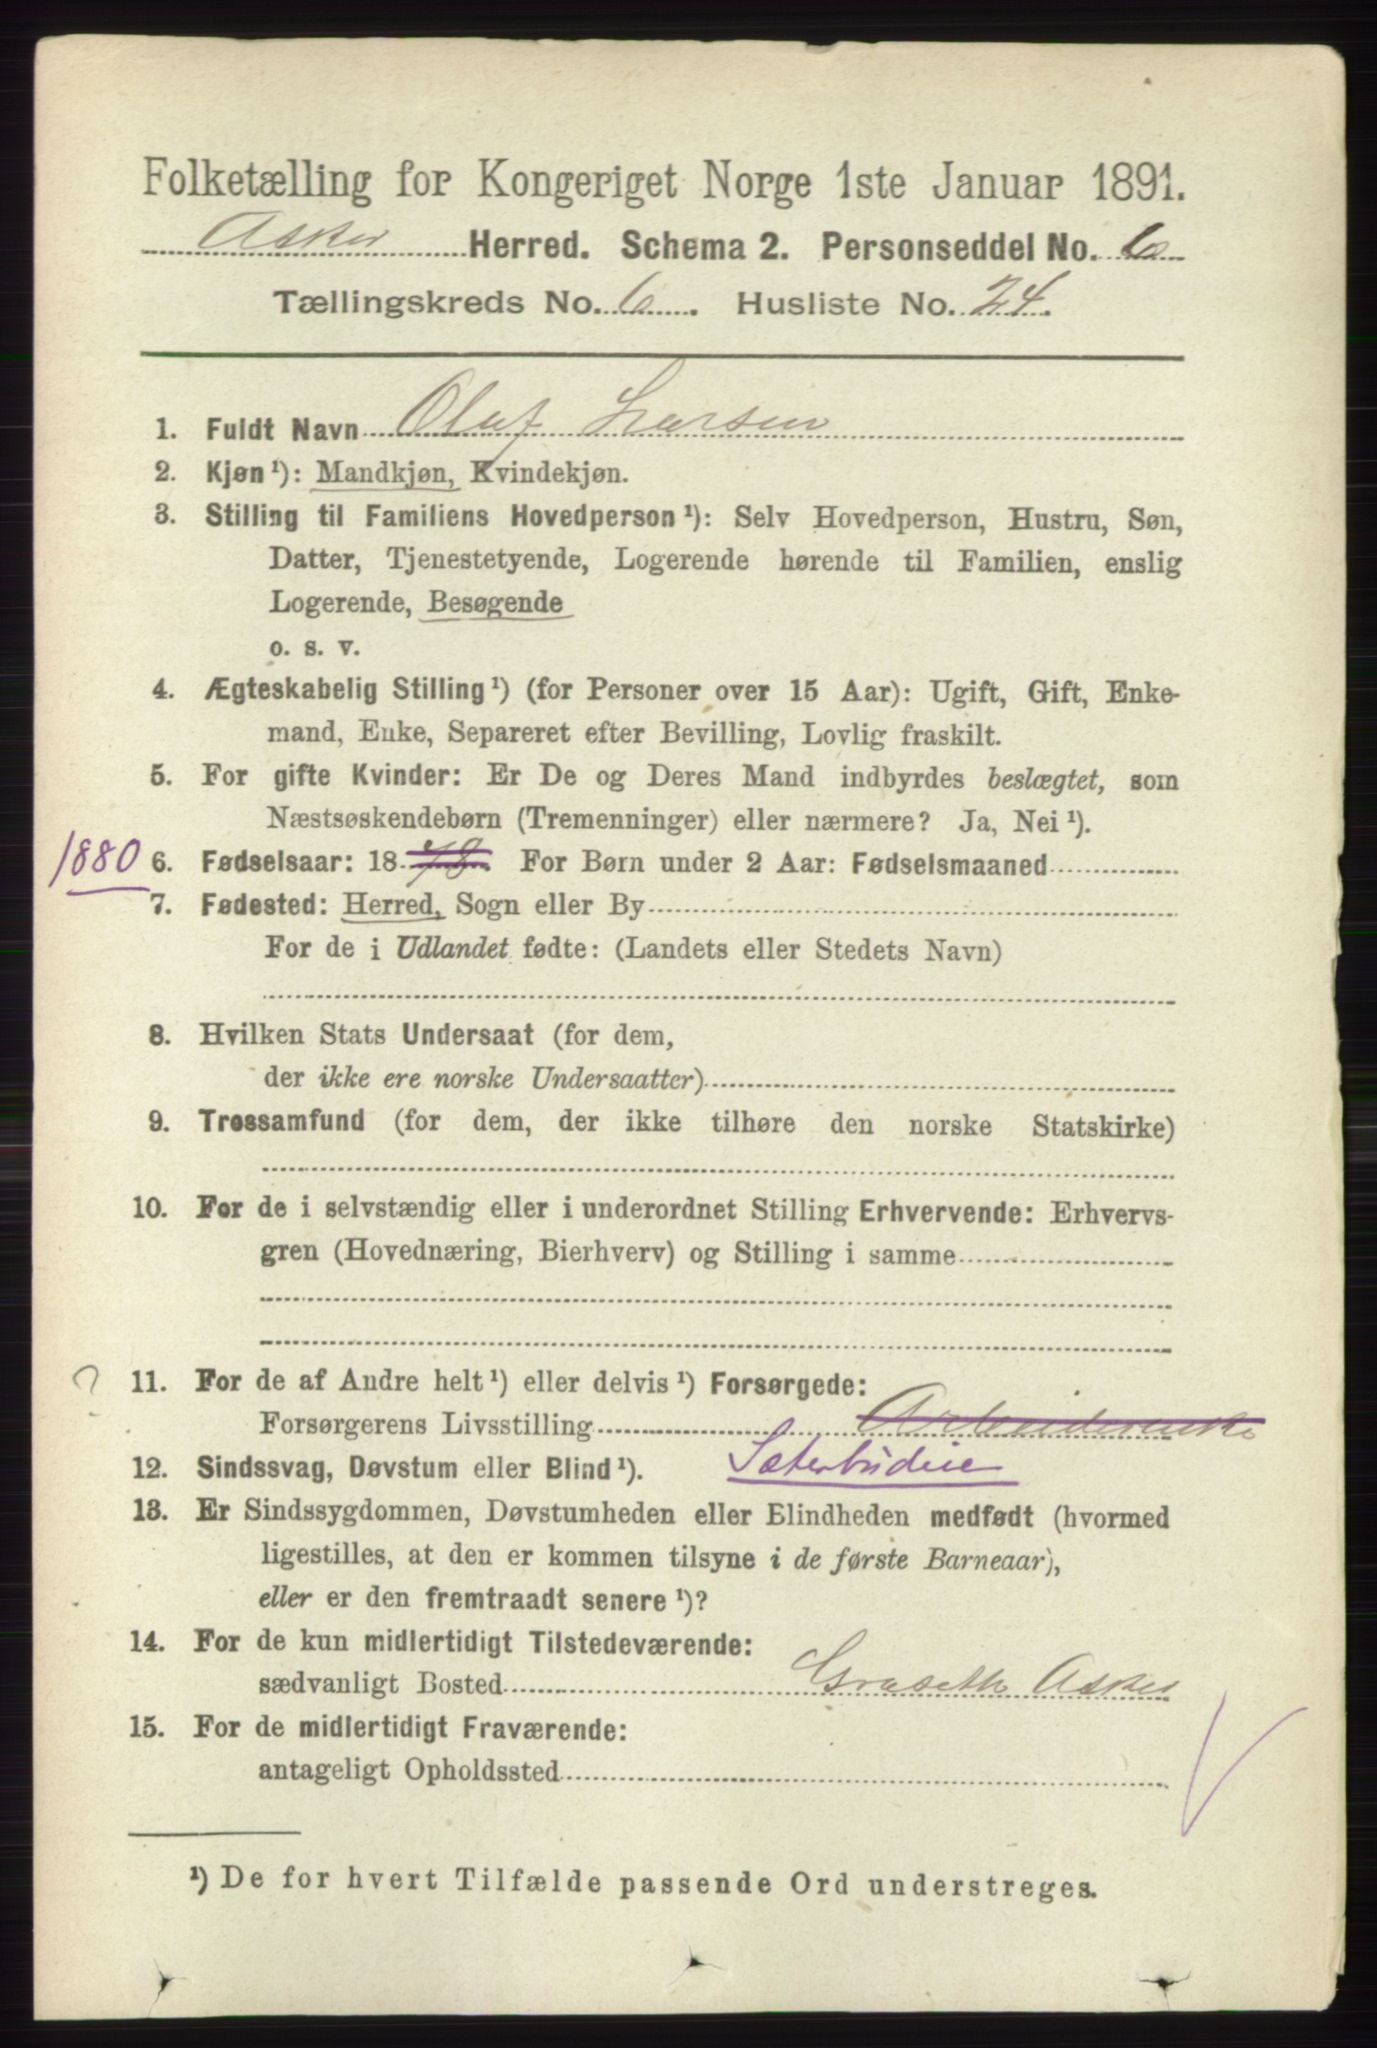 Folketælling for Kongeriget Norge 1ste Januar 1891.
Asker Herred. Schema 2. Personseddel No. 6
Tællingskreds No. 6. Husliste No. 24.
1. Fuldt Navn Olaf Larsen
2. Kjøn ¹): Mandkjøn, Kvindekjøn.
3. Stilling til Familiens Hovedperson ¹): Selv Hovedperson, Hustru, Søn,
Datter, Tjenestetyende, Logerende hørende til Familien, enslig
Logerende, Besøgende
o. s. v.
4. Ægteskabelig Stilling ¹) (for Personer over 15 Aar): Ugift, Gift, Enke-
mand, Enke, Separeret efter Bevilling, Lovlig fraskilt.
5. For gifte Kvinder: Er De og Deres Mand indbyrdes beslægtet, som
Næstsøskendebørn (Tremenninger) eller nærmere? Ja, Nei ¹).
1880 6. Fødselsaar: 18 78. For Børn under 2 Aar: Fødselsmaaned
7. Fødested: Herred, Sogn eller By
For de i Udlandet fødte: (Landets eller Stedets Navn)
8. Hvilken Stats Undersaat (for dem,
der ikke ere norske Undersaatter)
9. Trossamfund (for dem, der ikke tilhøre den norske Statskirke)
10. For de i selvstændig eller i underordnet Stilling Erhvervende: Erhvervs-
gren (Hovednæring, Bierhverv) og Stilling i samme
? 11. For de af Andre helt ¹) eller delvis ¹) Forsørgede:
Forsørgerens Livsstilling
12. Sindssvag, Døvstum eller Blind ¹). Sæterbudeie
13. Er Sindssygdommen, Døvstumheden eller Blindheden medfødt (hvormed
ligestilles, at den er kommen tilsyne i de første Barneaar),
eller er den fremtraadt senere ¹)?
14. For de kun midlertidigt Tilstedeværende:
sædvanligt Bosted Asker
15. For de midlertidigt Fraværende:
antageligt Opholdssted
¹) De for hvert Tilfælde passende Ord understreges.